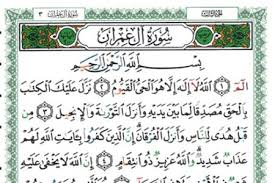 سُورَةُ آلِ عِمْرَانَ ٣
سُورَةُ آلِ عِمْرَانَ
بِسْمِ ٱللَّهِ ٱلرَّحْمَٰنِ ٱلرَّحِيمِ
الٓمٓ ١ ٱللَّهُ لَآ إِلَٰهَ إِلَّا هُوَ ٱلْحَىُّ ٱلْقَيُّومُ ٢ نَزَّلَ عَلَيْكَ ٱلْكِتَٰبَ
بِٱلْحَقِّ مُصَدِّقًا لِّمَا بَيْنَ يَدَيْهِ وَأَنزَلَ ٱلتَّوْرَىٰةَ وَٱلْإِنجِيلَ ٣ مِن
قَبْلُ هُدًى لِّلنَّاسِ وَأَنزَلَ ٱلْفُرْقَانَ إِنَّ ٱلَّذِينَ كَفَرُوا۟ بِـَٔايَٰتِ ٱللَّهِ لَهُمْ
عَذَابٌ شَدِيدٌ وَٱللَّهُ عَزِيزٌ ذُو ٱنتِقَامٍ ٤ إِنَّ ٱللَّهَ لَا يَخْفَىٰ عَلَيْهِ